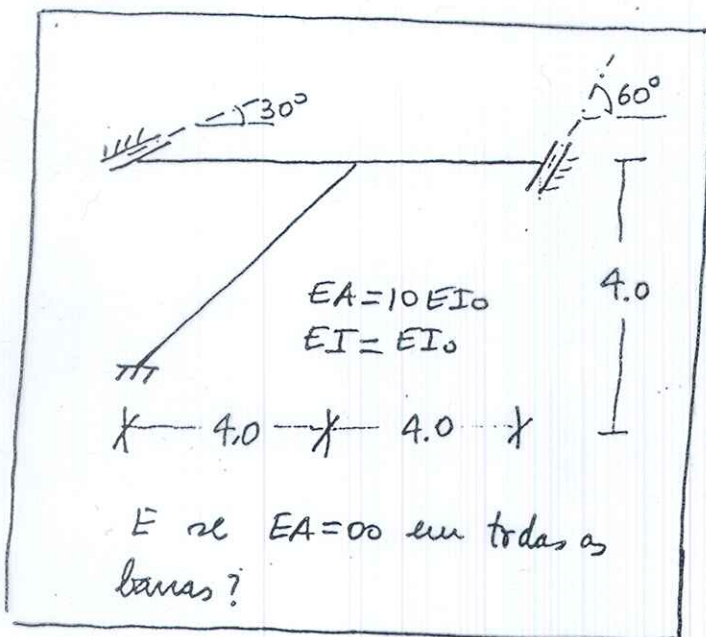 30°
60°
EA=10 EI₀
EI=EI₀
4.0
4.0
4.0
E se EA=∞ em todas as
barras?